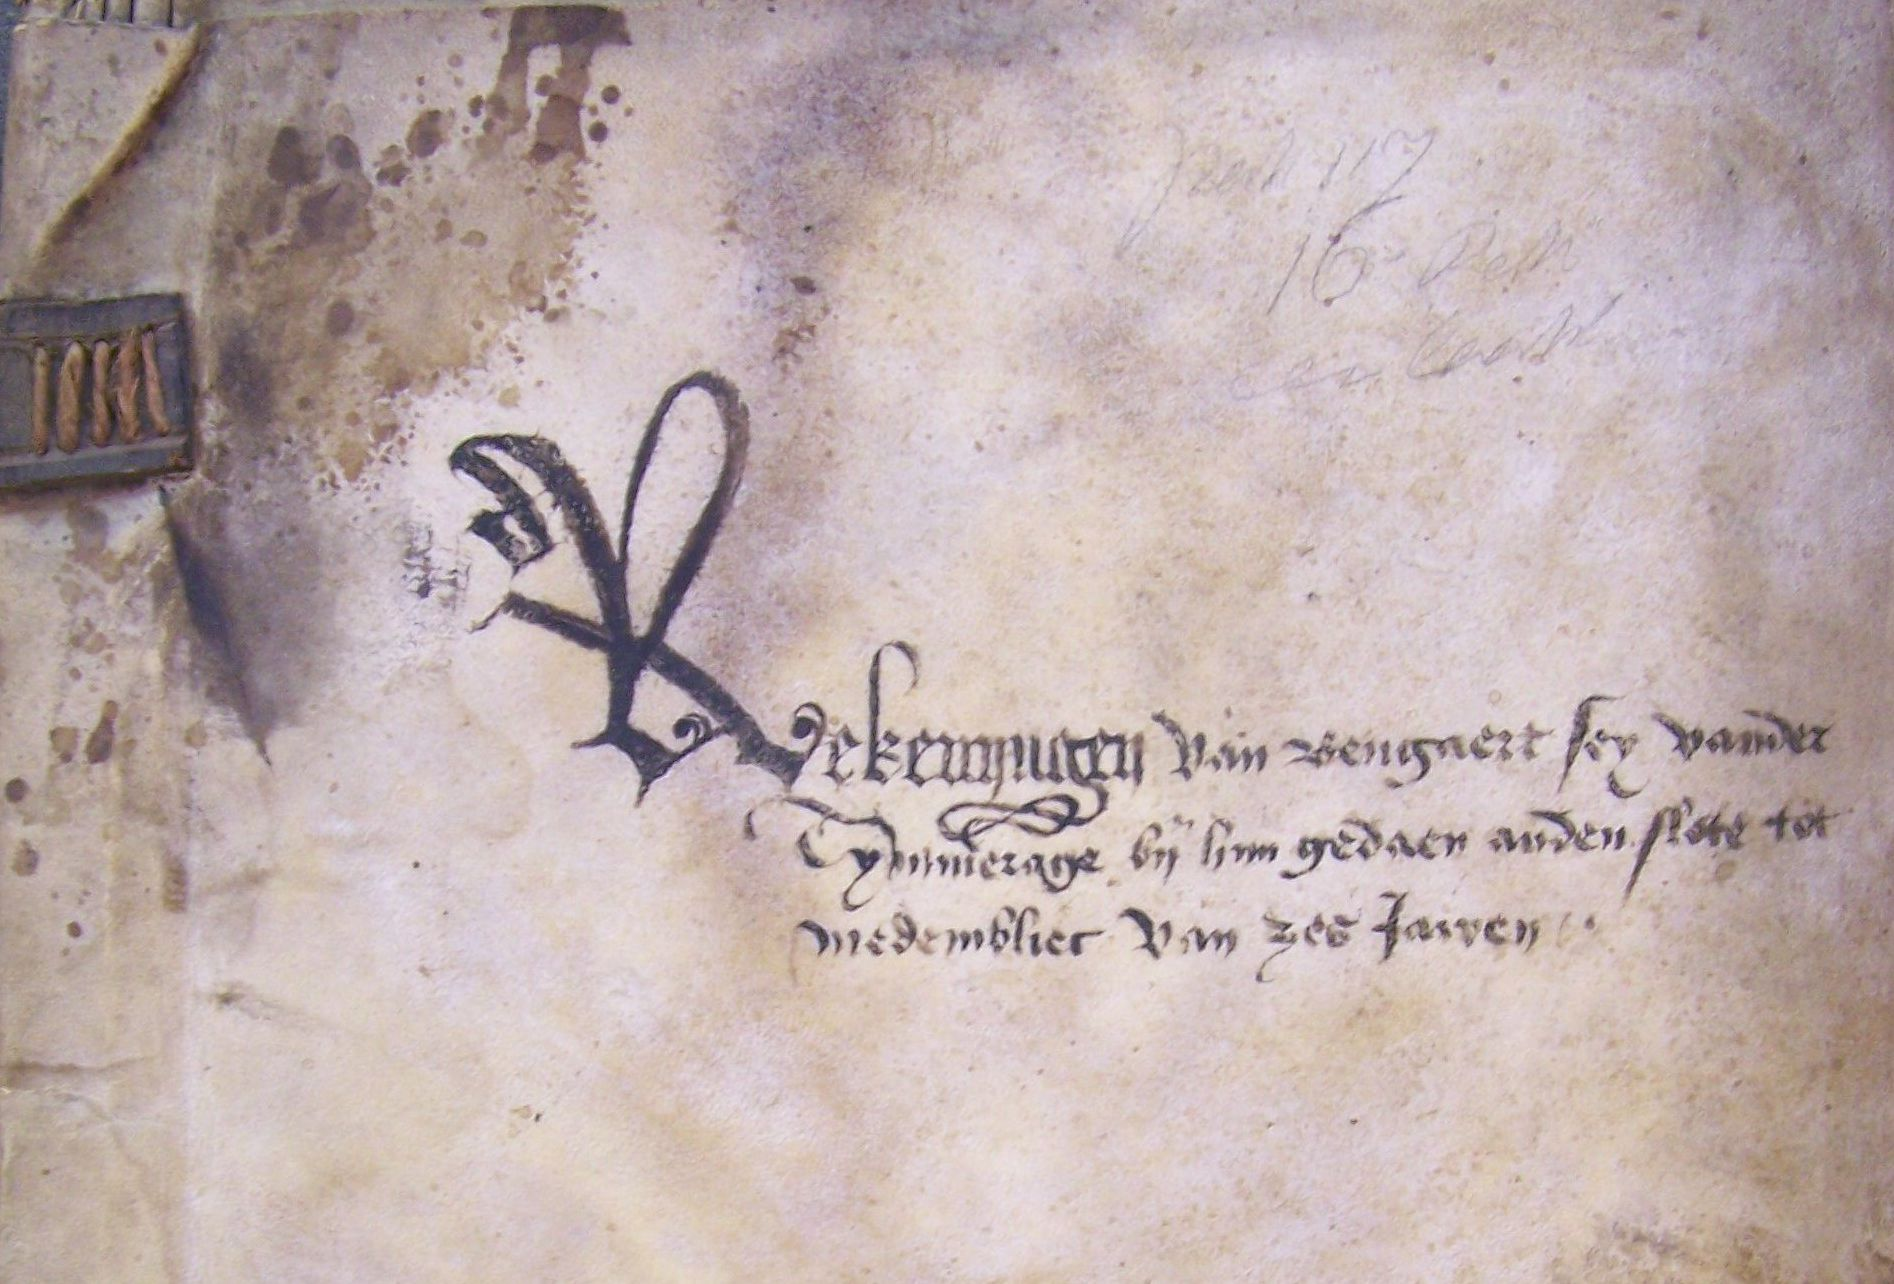 Rekenningen van wengaert sey vander
Tymmerage bij him gedaen anden slote tot
medemblict van zes Jairen
16